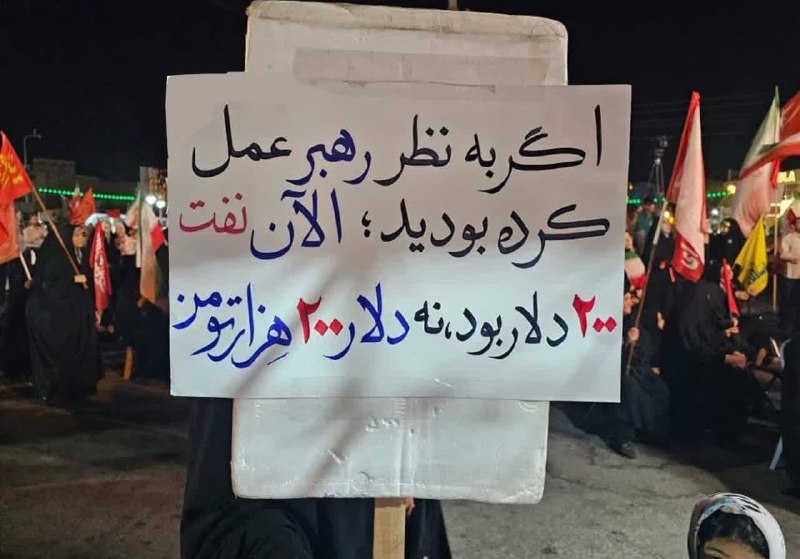 اگر به نظر رهبر عمل
کرده بودید؛ الآن نفت
۲۰۰ دلار بود، نه دلار ۲۰۰ هزار تومن